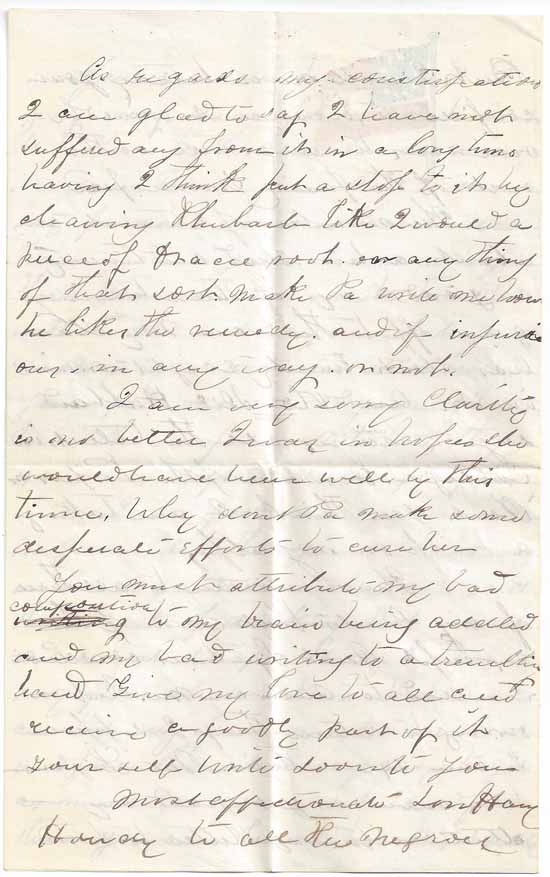 As regards my constipation
I am glad to say I have not
suffered any from it in a long time
having I think put a stop to it by
chewing Rhubarb like I would a
piece of root. or any thing
of that sort. make Pa write me how
he likes the remedy. and if injuri
ous. in any way. or not.
I am very sorry
is no better I was in hopes she
would have been well by this
time. Why dont Pa make some
desperate efforts to cure her
You must attribute my bad
composition
writing to my brain being addled
and my bad writing to a tremblin
hand Give my love to all and
receive a goodly part of it
your self write soon to your
most affectionate son Harry
Howdy to all the negroes